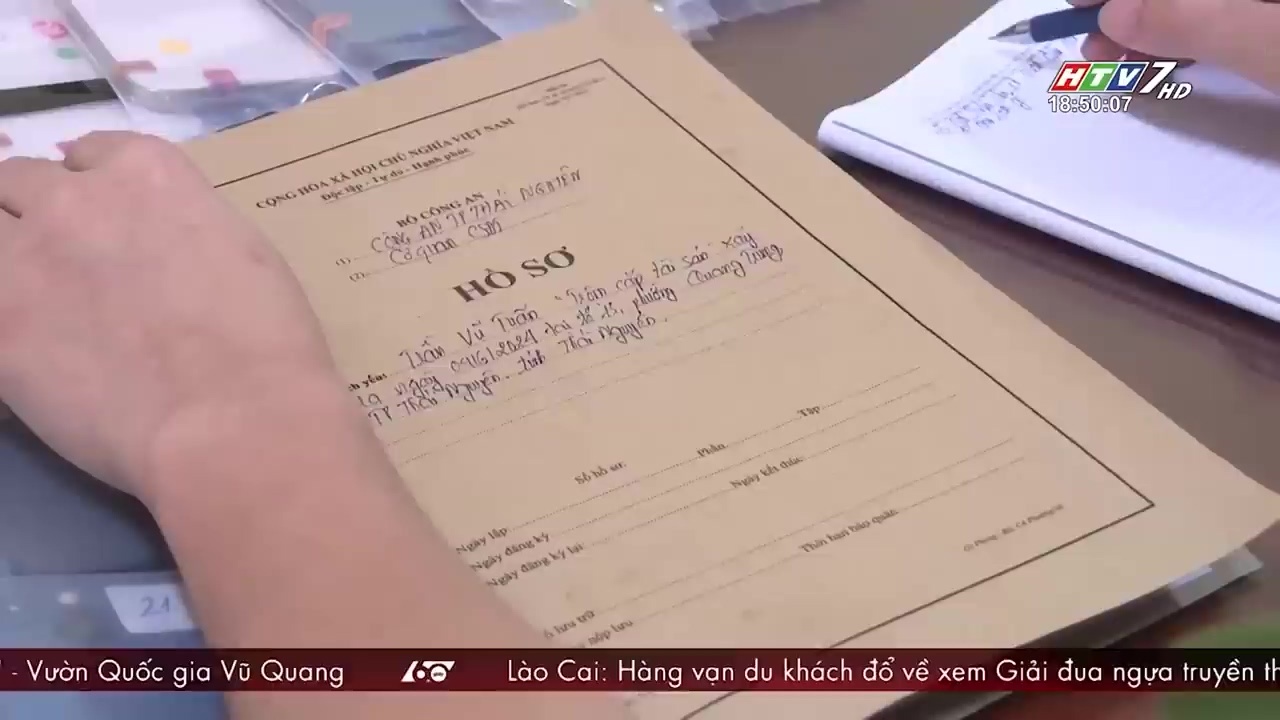 HTV7 HD
18:50:07
CỘNG HÒA XÃ HỘI CHỦ NGHĨA VIỆT NAM
Độc lập - Tự do - Hạnh phúc
BỘ CÔNG AN
(1) CÔNG AN TP THÁI NGUYÊN
(2) Cơ quan CSĐT
HỒ SƠ
Trần Vũ Tuấn "Trộm cắp tài sản" xảy
ra ngày 09/6/2024 tại tổ 13, phường Quang Trung
TP Thái Nguyên, tỉnh Thái Nguyên.
Số hồ sơ: Phần Tập
Ngày lập Ngày kết thúc
Ngày đăng ký
Ngày đăng ký lại
lưu trữ Thời hạn bảo quản
nộp lưu
21
- Vườn Quốc gia Vũ Quang 60 Lào Cai: Hàng vạn du khách đổ về xem Giải đua ngựa truyền th